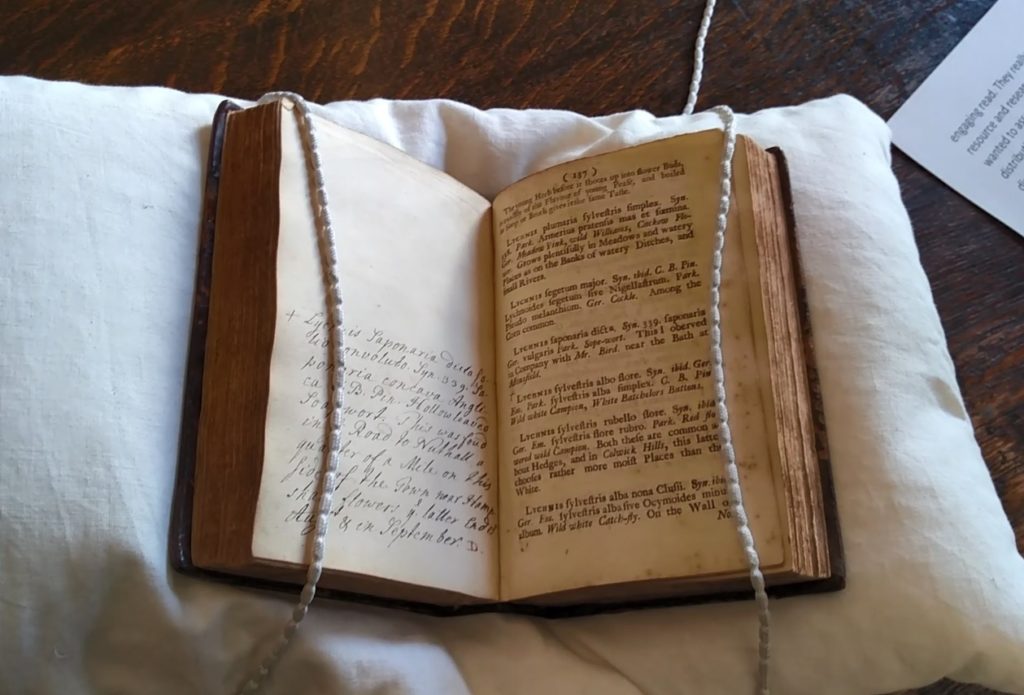 + Lychnis Saponaria dicta fo
lio convoluto. Syn. 339. Sa
ponaria concava Angli
ca C.B. Pin. Hollowleaved
Soapwort. This was found
in the Road to Nuthall a
quarter of a Mile on this
side of the Town near Hemp
shall flowers ye latter End of
Augt & in September. D.
( 137 )
The young Herb before it shoots up into flower Buds,
of the Flavour of young Pease, and boiled
in Soop or Broth gives the same Taste.
LYCHNIS plumaria sylvestris simplex. Syn.
338. Park. Armerius pratensis mas et fœmina.
Ger. Meadow Pink, wild Williams, Cuckow Flo-
wer. Grows plentifully in Meadows and watery
Places as on the Banks of watery Ditches, and
small Rivers.
LYCHNIS segetum major. Syn. ibid. C. B. Pin.
Lychnoides segetum sive Nigellastrum. Park.
Pseudo melanthium. Ger. Cockle. Among the
Corn common.
LYCHNIS saponaria dicta. Syn. 339. saponaria
Ger. vulgaris Park. Sope-wort. This I observed
in Company with Mr. Bird. near the Bath at
Mansfield.
LYCHNIS sylvestris albo flore. Syn. ibid. Ger.
Em. Park. sylvestris alba simplex. C. B. Pin
Wild white Campion, White Batchelors Buttons.
LYCHNIS sylvestris rubello flore. Syn. ibid
Ger. Em. sylvestris flore rubro. Park. Red flo
wered wild Campion. Both these are common a
bout Hedges, and in Colwick Hills, this latte
chooses rather more moist Places than the
White.
LYCHNIS sylvestris alba nona Clusii. Syn. ibi
Ger. Em. sylvestris alba sive Ocymoides minu
album. Wild white Catch-fly. On the Wall o
No
engaging read. They reall
resource and resea
wanted to as
distrib